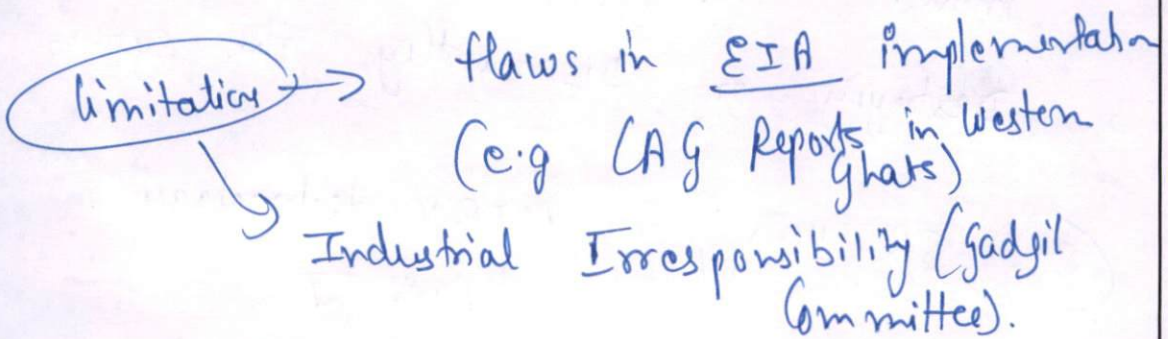 limitations → flaws in EIA implementation
(e.g CAG Reports in Western
Ghats)
Industrial Irresponsibility (Gadgil
Committee).